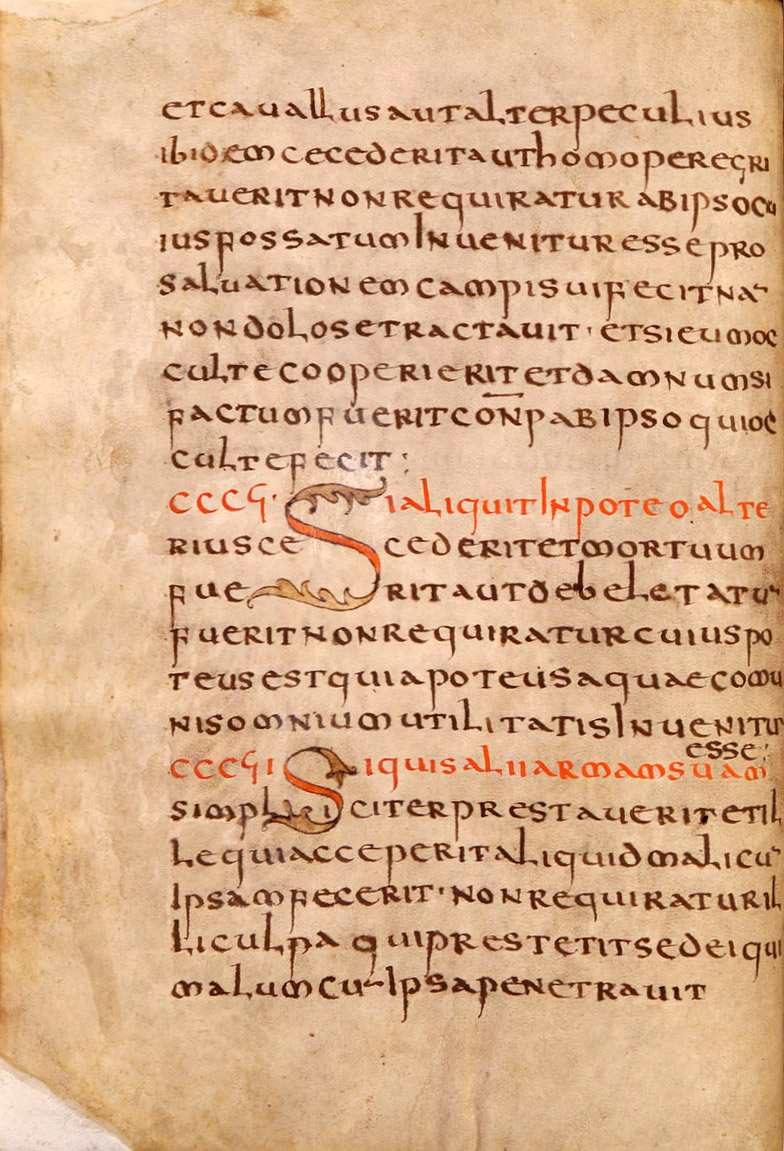 et cauallus aut alter peculius
ibidem cecederit aut homo peregri
tauerit non requiratur ab ipso cu
ius fossatum inuenitur esse pro
saluationem campi sui fecit na̅
non dolose tractauit · et si eum oc
culte cooperierit et damnum si
factum fuerit con̅p ab ipso qui oc
culte fecit :
CCCϛ· Si aliquit in poteo alte
rius ce cederit et mortuum
fue rit aut debeletatu̅
fuerit non requiratur cuius po
teus est quia poteus aquae comu
nis omnium utilitatis inuenitur
esse :
CCCϛI Si quis alii armam suam
simpli citer prestauerit et il
le qui acceperit aliquid mali cu̅
ipsam fecerit · non requiratur il
li culpa qui prestetit sed ei qui
malum cu̅ ipsa penetrauit